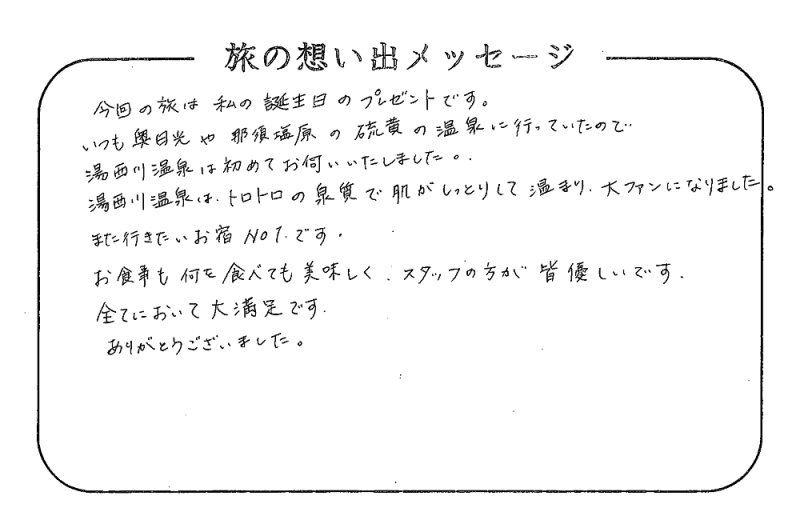 旅の想い出メッセージ
今回の旅は 私の 誕生日のプレゼントです。
いつも奥日光や 那須塩原の 硫黄の温泉に行っていたので
湯西川温泉は初めてお伺いいたしました。
湯西川温泉は、トロトロの泉質で肌がしっとりして温まり、大ファンになりました。
また行きたいお宿 NO1.です。
お食事も何を食べても美味しく、スタッフの方が皆優しいです。
全てにおいて大満足です。
ありがとうございました。